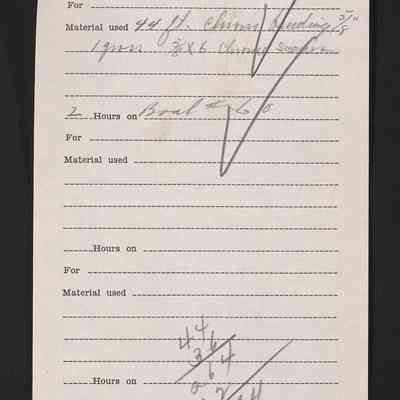 For
Material used 44 ft. chrome beading 3/8"
1 gross 5/8 x 6 chrome screws
2 Hours on Boat # 60
For
Material used
Hours on
For
Material used
44
36
64
Hours on